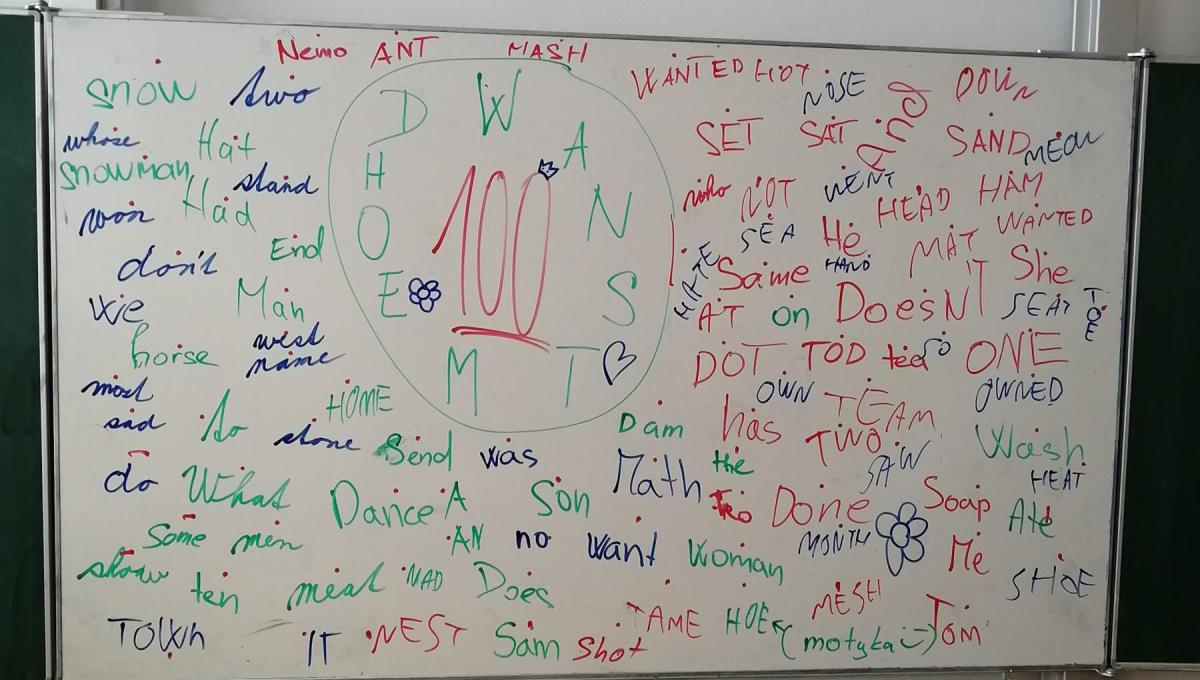 Nemo ANT MASH
WANTED HOT NOSE And DOWN
snow two
D W A N S T M E O H
100
SET SAT SAND MEOW
whose Hat
snowman stand
who NOT WENT HEAD HAM
won Had
SEA He MAT WANTED
End
don't
HATE Same HAND She
we Man
AT on DoesN'T SEAT TOE
horse west
name
DOT TOD ted SO ONE
most
HOME
OWN TEAM OWNED
sad to stone Send was
Dam has TWO SAW Wash
do What Dance A Son Math the HEAT
to Done Soap Ate
Some men AN no want Woman MONTH Me
show ten meat MAD Does SHOE
TOWN IT NEST Sam Shot TAME HOE (motyka :-) MESH Tom